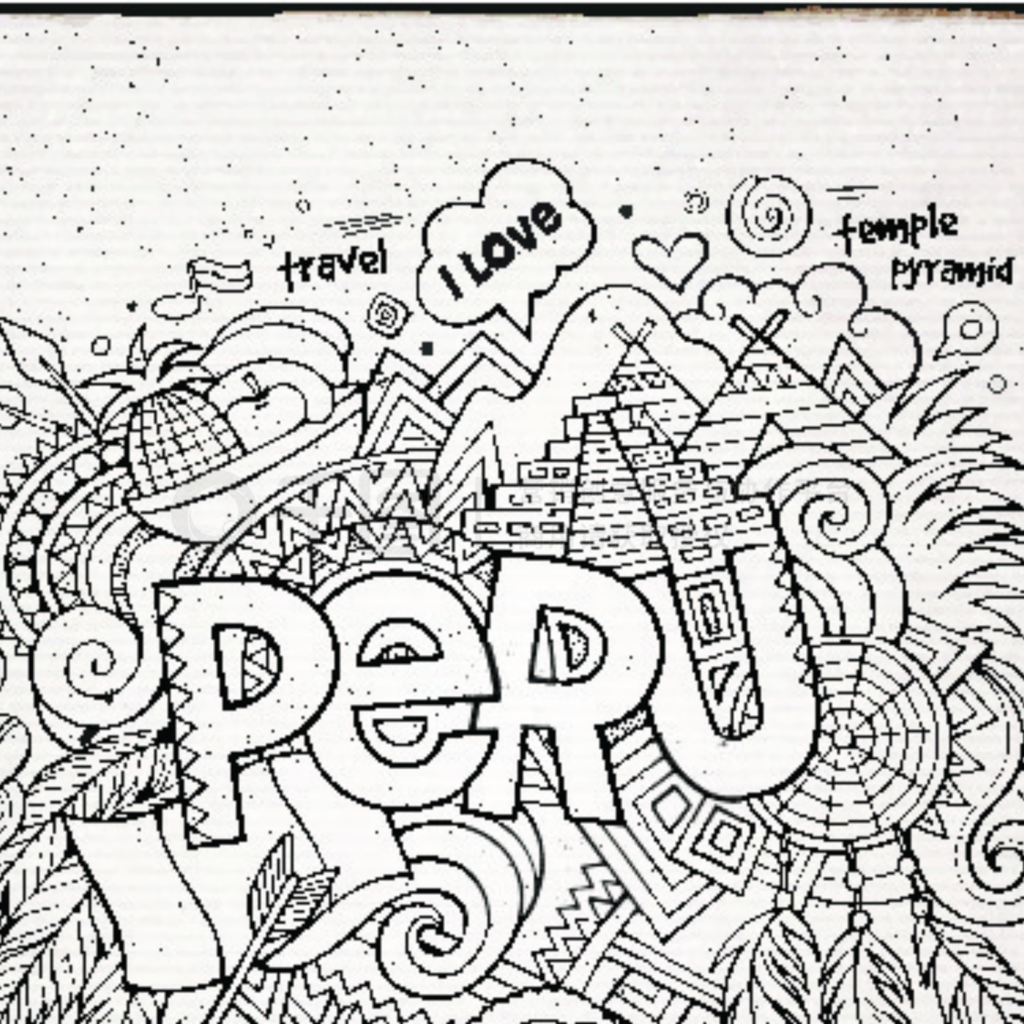 I LOVE
travel
temple
pyramid
PeRU